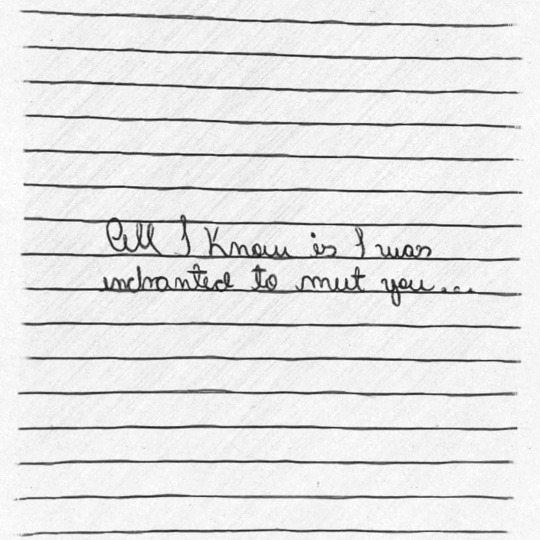 All I Know is I was
enchanted to meet you...